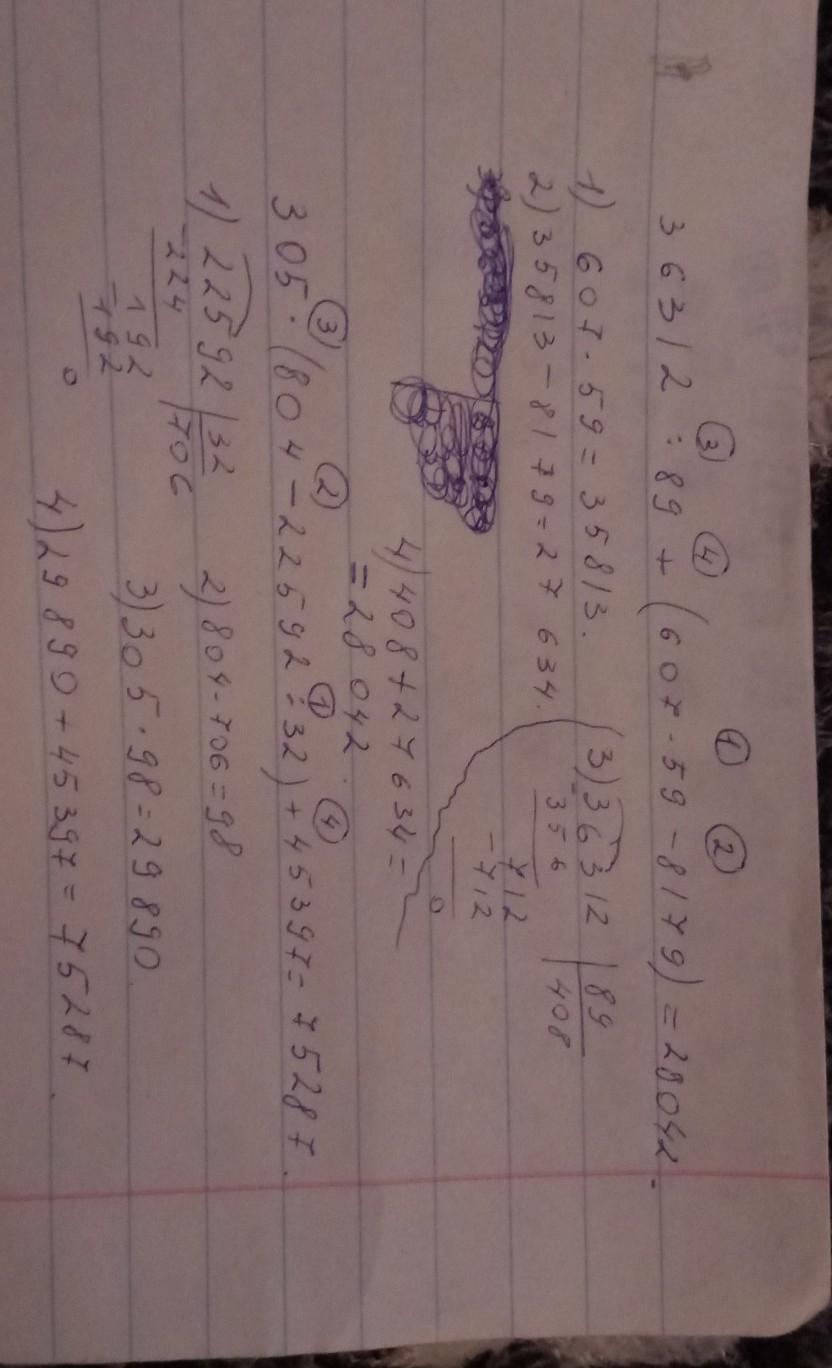 ③ ④ ① ②
36312 : 89 + (607 · 59 - 8179) = 28042.
1) 607 · 59 = 35813.
2) 35813 - 8179 = 27 634.
3) 36312 | 89
- 356 408
712
- 712
0
4) 408 + 27634 =
= 28 042.
③ ② ① ④
305 · (804 - 22592 : 32) + 45397 = 75287.
1) 22592 | 32
- 224 706
192
- 192
0
2) 804 - 706 = 98
3) 305 · 98 = 29890
4) 29890 + 45397 = 75287.